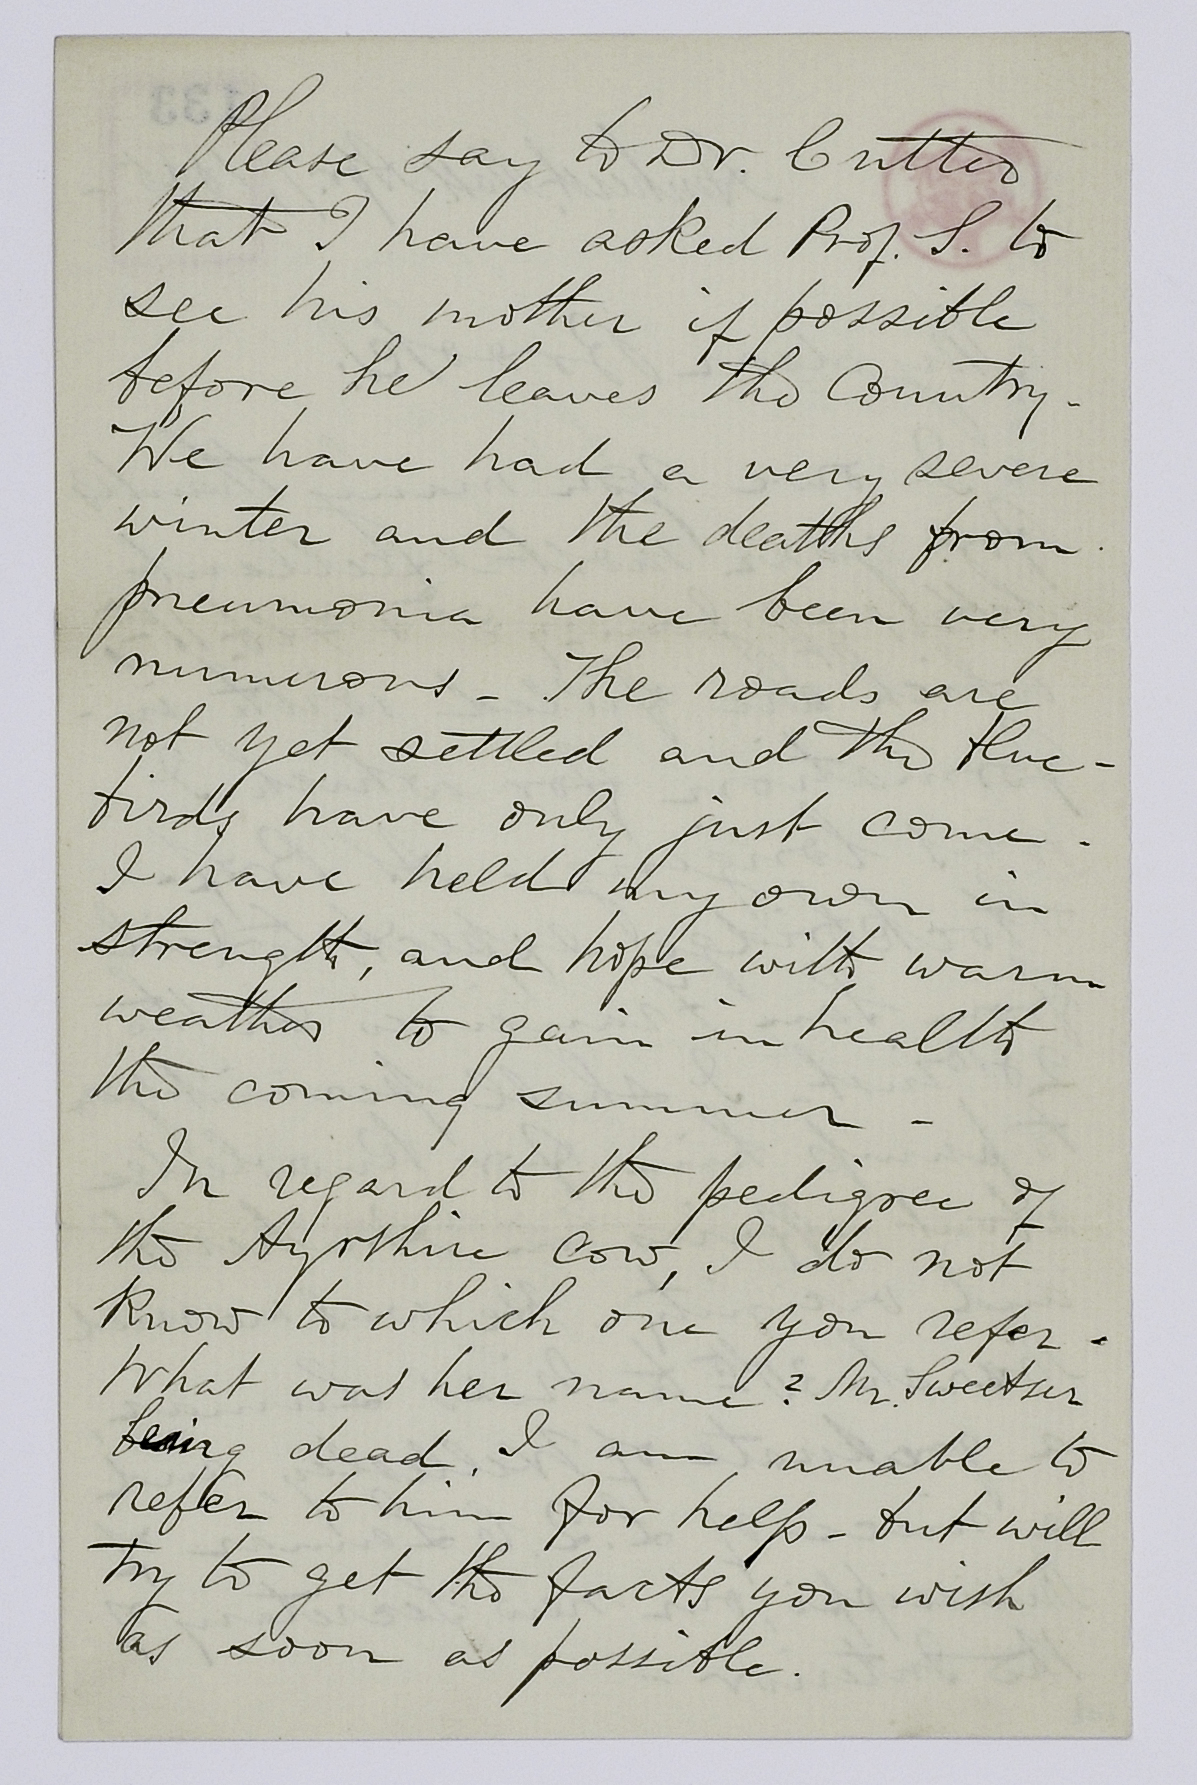 Please say to Dr. Cutter
that I have asked Prof. S. to
see his mother if possible
before he leaves the Country.
We have had a very severe
winter and the deaths from
pneumonia have been very
numerous - The roads are
not yet settled and the blue-
birds have only just come.
I have held my own in
strength, and hope with warm
weather to gain in health
the coming summer -
In regard to the pedigree of
the Ayrshire cow, I do not
know to which one you refer.
What was her name? Mr. Sweetser
being dead, I am unable to
refer to him for help - but will
try to get the facts you wish
as soon as possible.